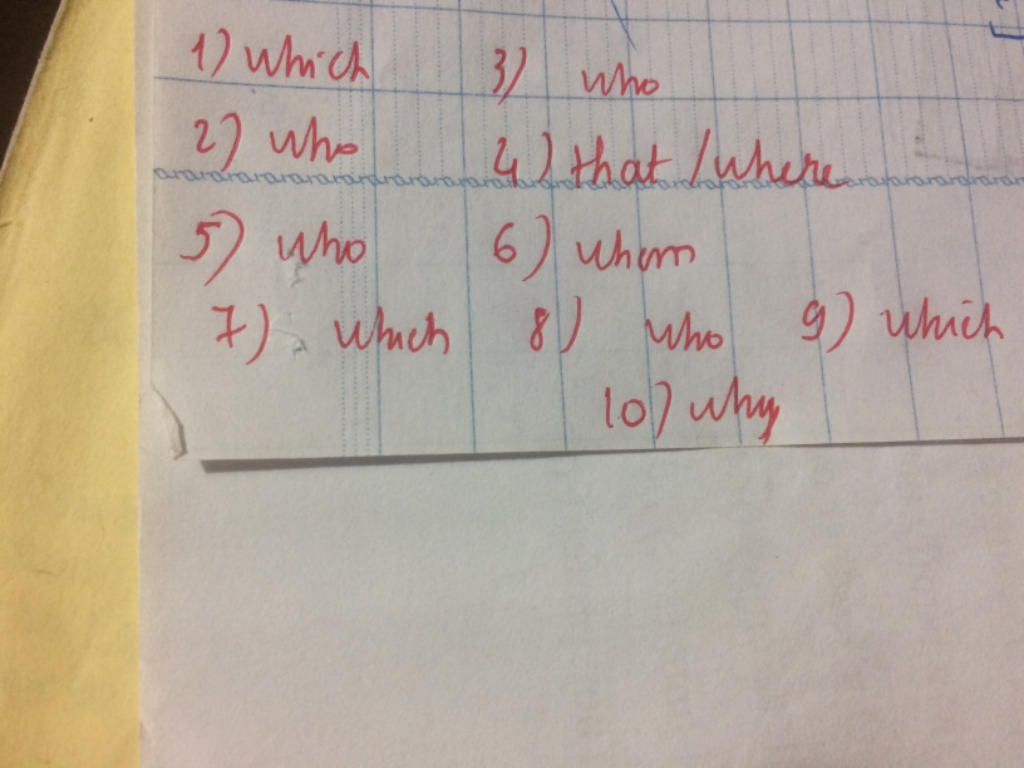 1) which 3) who
2) who 4) that / where
5) who 6) whom
7) which 8) who 9) which
10) why